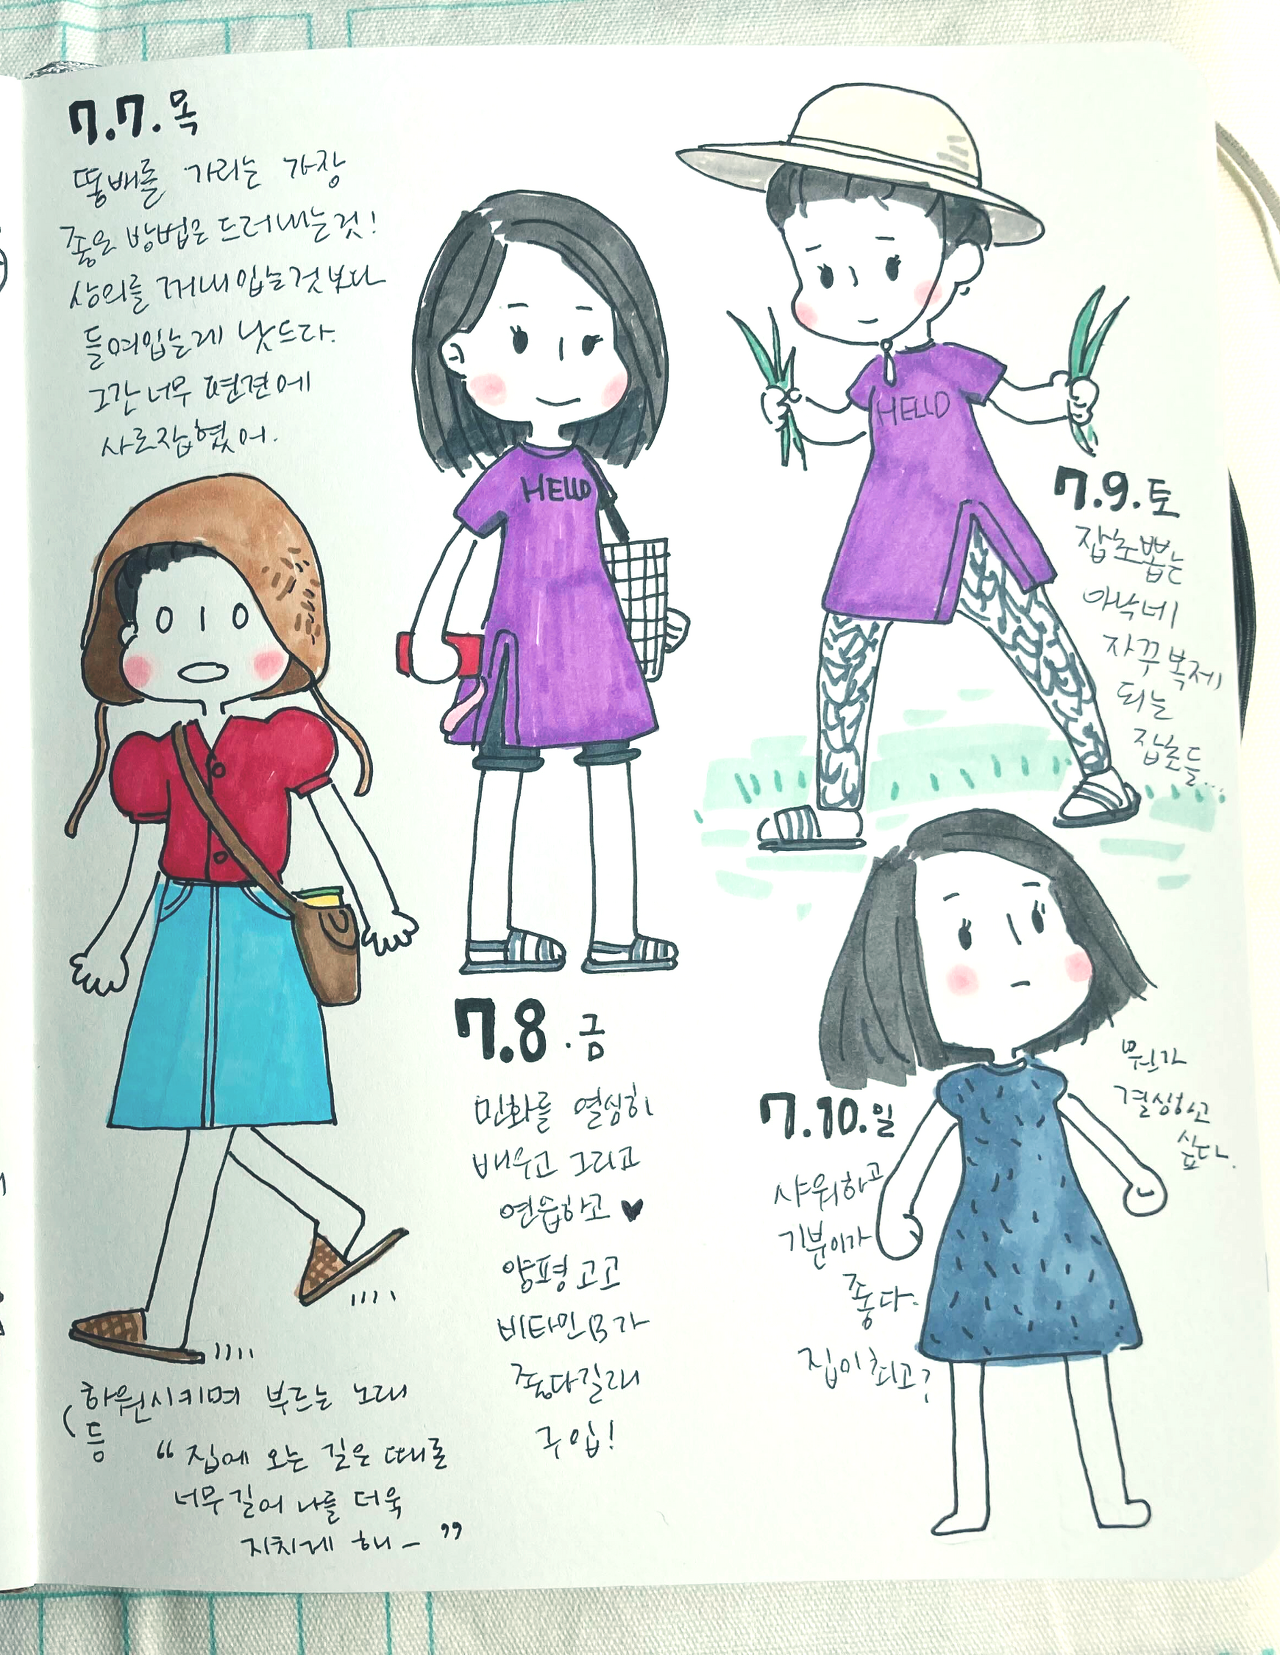 7.7.목
똥배를 가리는 가장
좋은 방법은 드러내는것!
상의를 꺼내입는것보다
들여입는게 낫드라.
그간 너무 편견에
사로잡혔어.
(하원시키며 부르는 노래
등
“집에 오는 길은 때로
너무 길어 나를 더욱
지치게 해—”
HELLO
7.8.금
민화를 열심히
배우고 그리고
연습하고 ♥
양평 고고
비타민B가
좋다길래
구입!
HELLO
7.9.토
잡초뽑는
아낙네
자꾸 복제
되는
잡초들...
7.10.일
샤워하고
기분이가
좋다.
집이 최고?
뭔가
결심하고
싶다.